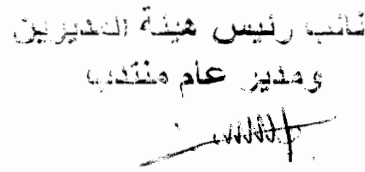 نائب رئيس هيئة المديرين
ومدير عام منتدب